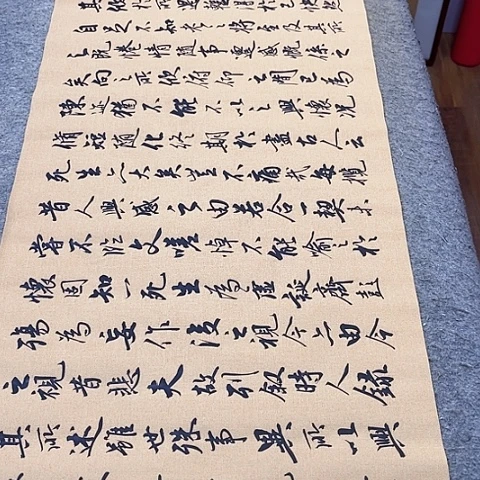 其欣於所遇暫得於己快然
自足不知老之將至及其所
之既惓情隨事遷感慨係之
矣向之所欣俯仰之間已為
陳迹猶不能不以之興懷況
脩短隨化終期於盡古人云
死生亦大矣豈不痛哉每攬
昔人興感之由若合一契未
嘗不臨文嗟悼不能喻之於
懷固知一死生為虛誕齊彭
殤為妄作後之視今亦由今
之視昔悲夫故列叙時人錄
其所述雖世殊事異所以興